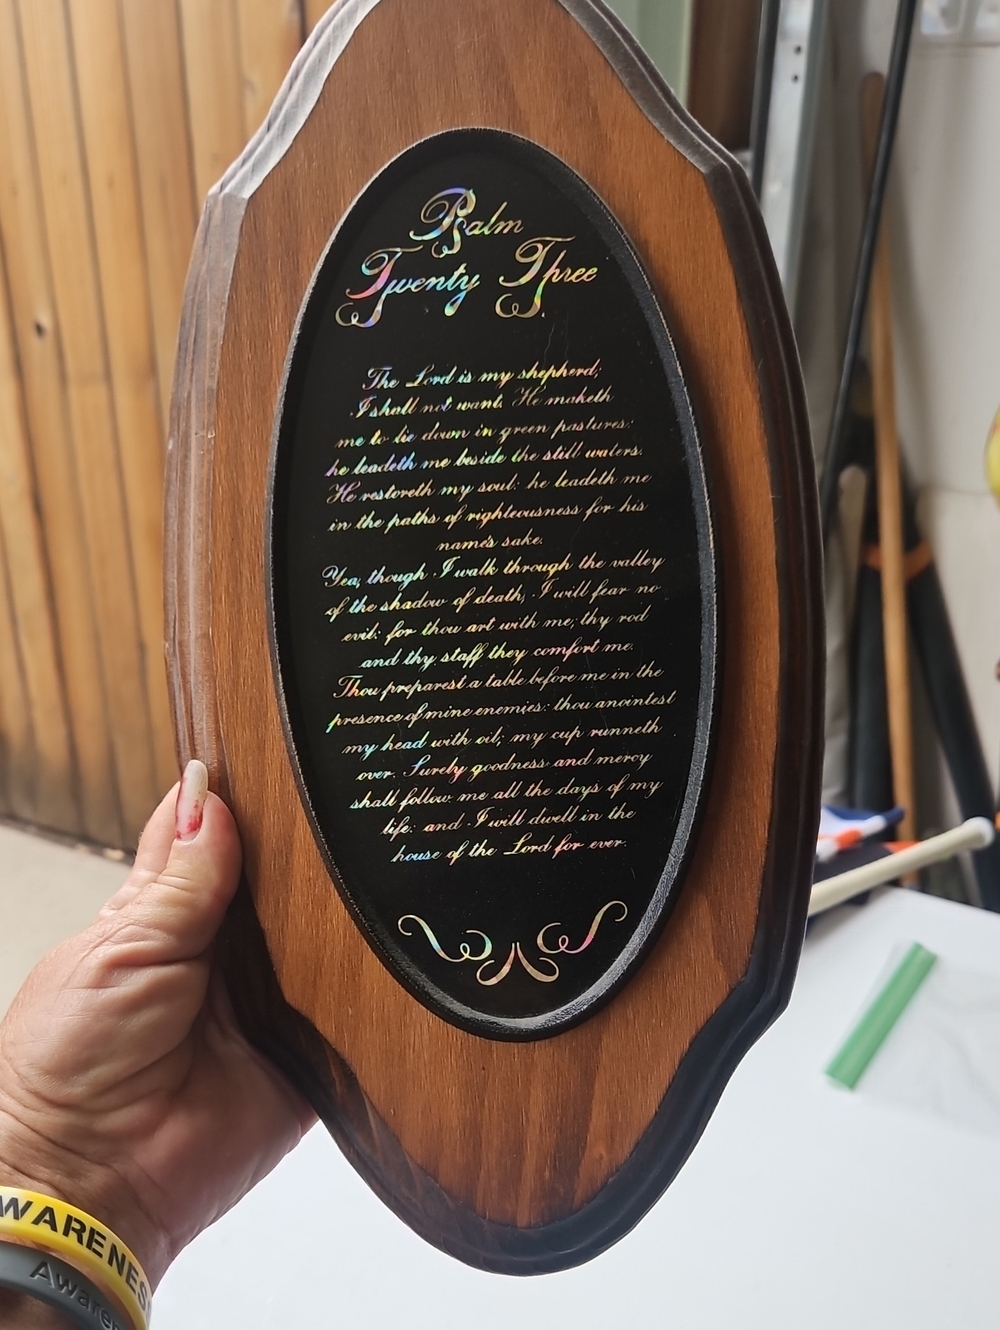 Psalm
Twenty Three
The Lord is my shepherd;
I shall not want. He maketh
me to lie down in green pastures:
he leadeth me beside the still waters.
He restoreth my soul: he leadeth me
in the paths of righteousness for his
name's sake.
Yea, though I walk through the valley
of the shadow of death, I will fear no
evil: for thou art with me; thy rod
and thy staff they comfort me.
Thou preparest a table before me in the
presence of mine enemies: thou anointest
my head with oil; my cup runneth
over. Surely goodness and mercy
shall follow me all the days of my
life: and I will dwell in the
house of the Lord for ever.
WARENES
Awaren